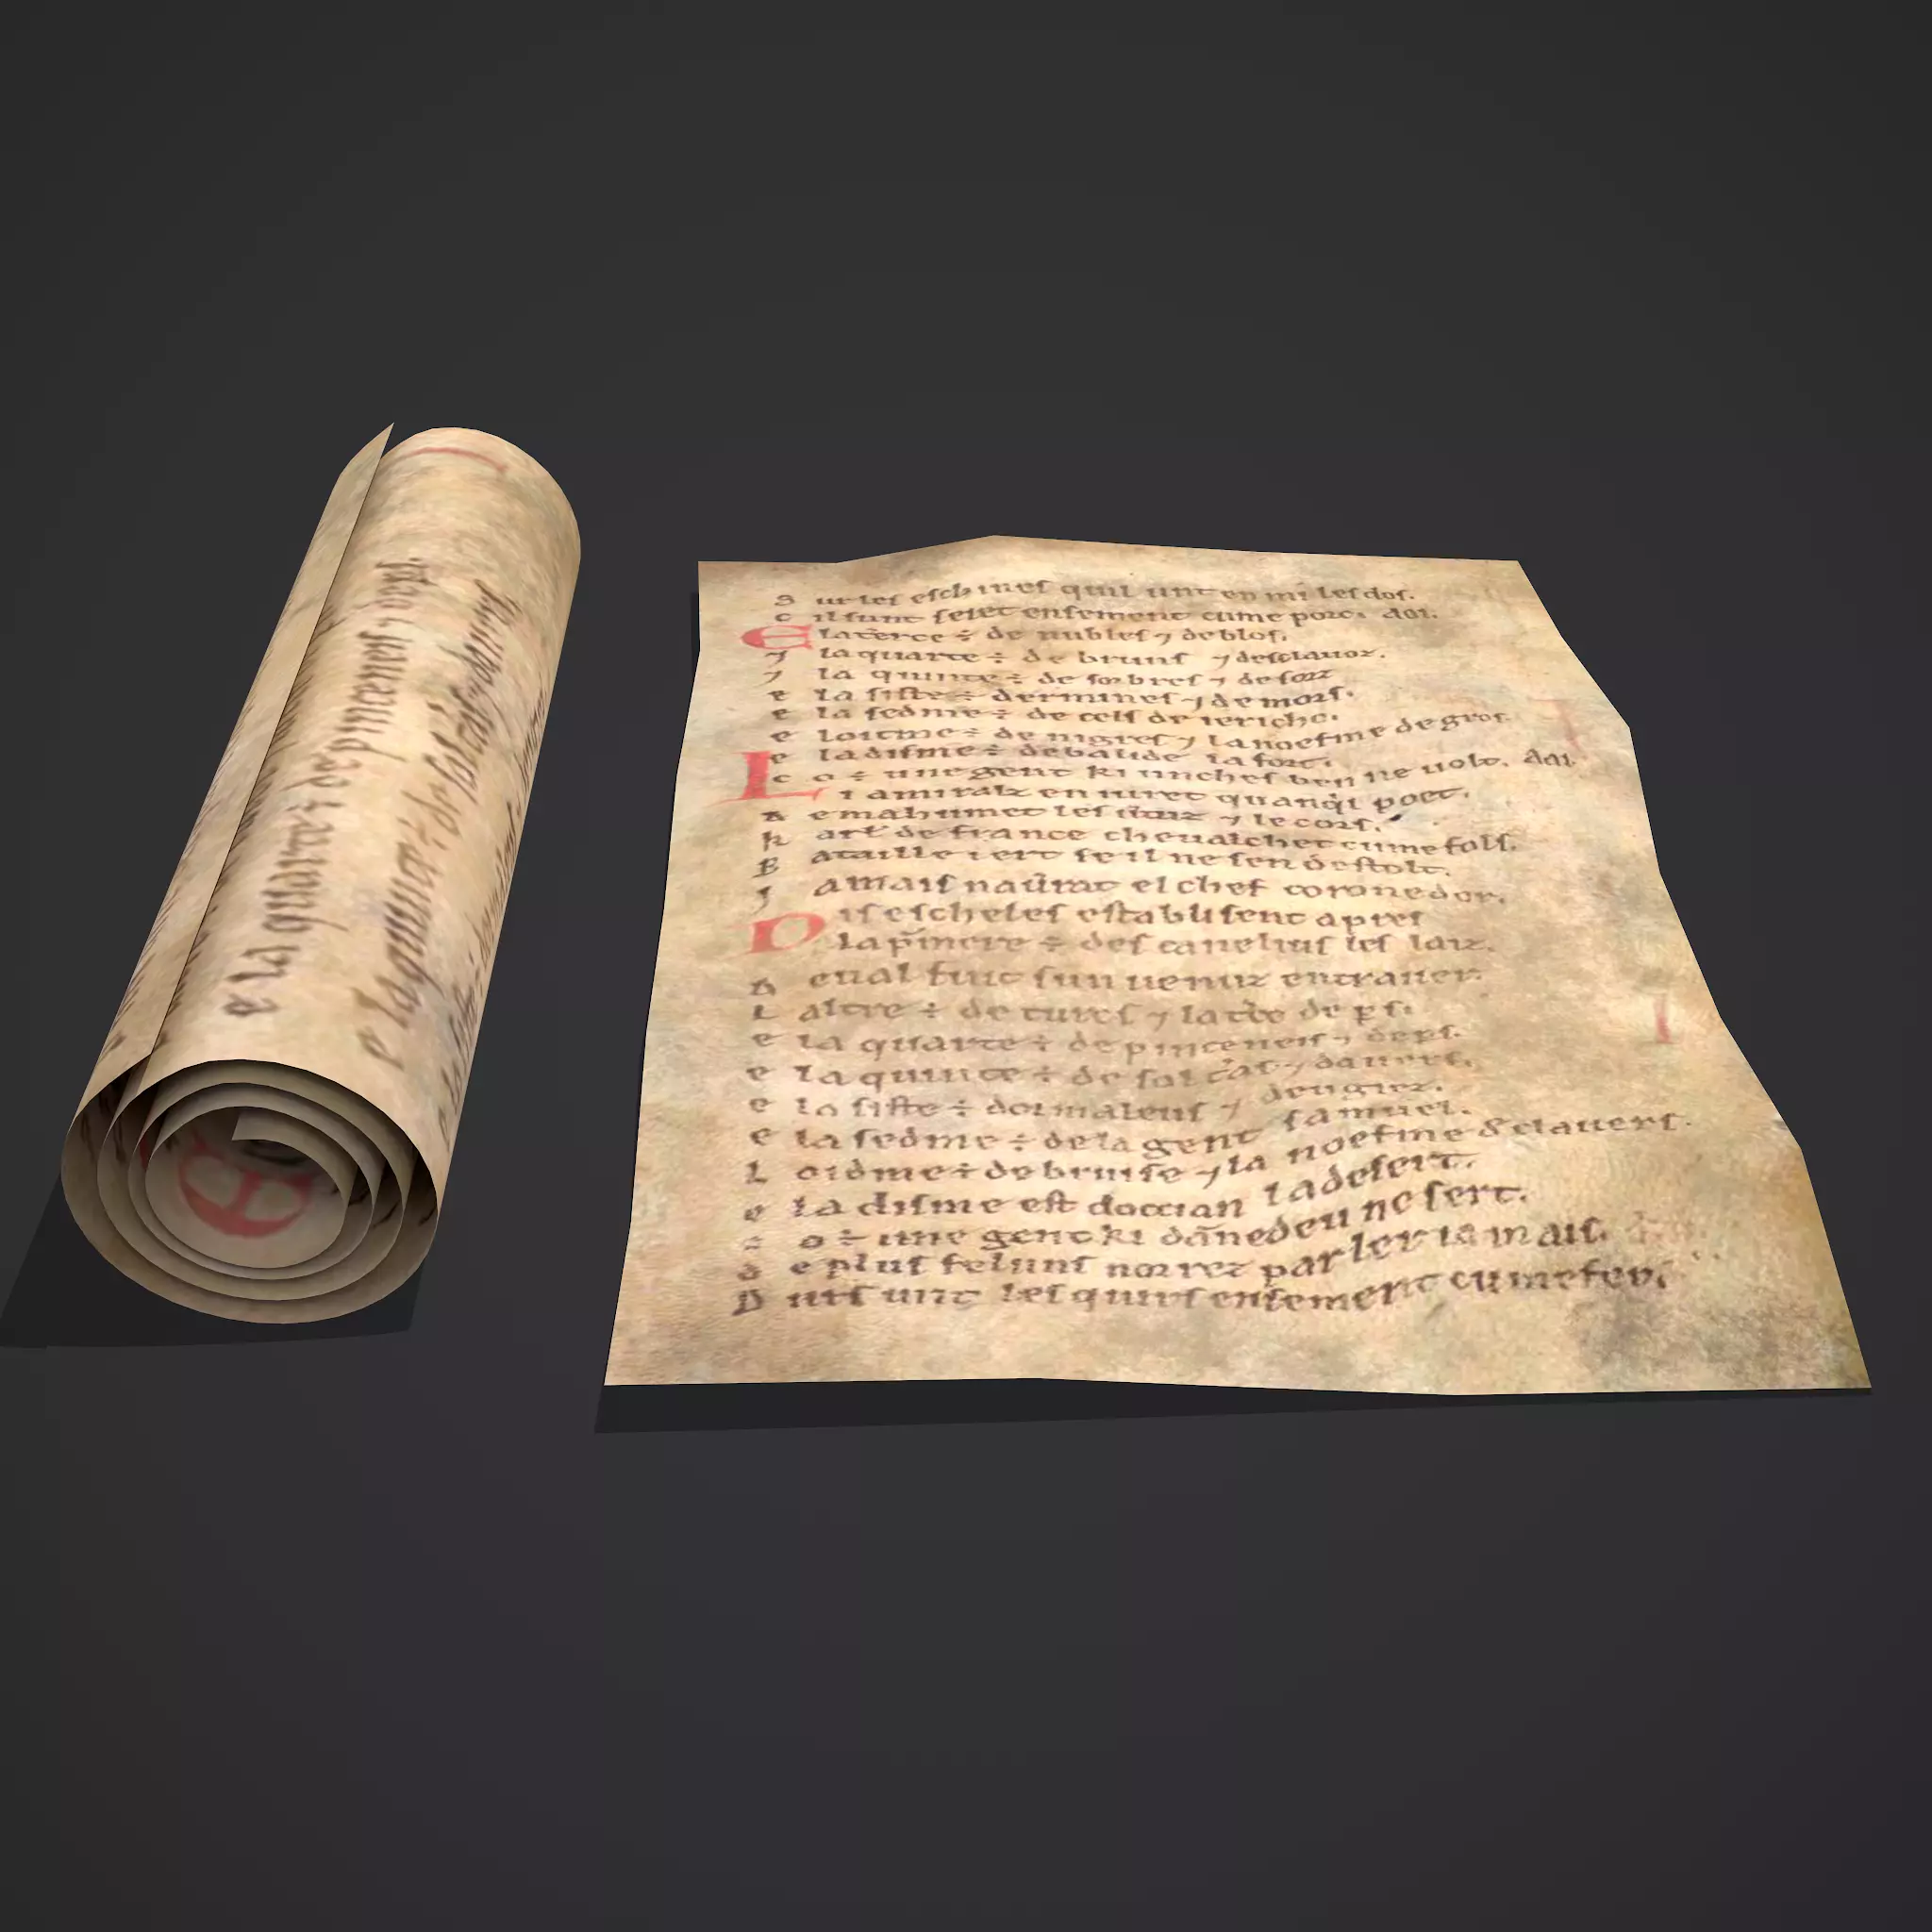 e la quarte ÷ de pinceneſ ⁊ deperſ.
e la quinte ÷ de ſolcaſ ⁊ dauerſ
S ur leſ eſchineſ quil unt en mi leſ doſ.
C il ſunt ſeiet enſement cume porc. Aoi.
E la terce ÷ de nubleſ ⁊ de bloſ.
⁊ la quarte ÷ de brunſ ⁊ deſclauoz.
⁊ la quinte ÷ de ſorbreſ ⁊ de ſorz
e la ſiſte ÷ dermineſ ⁊ de morſ.
e la ſedme ÷ de celſ de iericho.
e loitme ÷ de nigreſ ⁊ la noefme de groſ.
e la diſme ÷ de balide la fort.
c o ÷ une gent ki uncheſ ben ne uolt. Aoi.
L i amiralz en iuret quanqi poet.
de mahumet leſ ũtuz ⁊ le corſ.
K arł de france cheualchet cume folſ.
B ataille i ert ſe il ne ſen deſtolt.
J amaiſ naũrat el chef corone dor.
D iſ eſcheleſ eſtabliſent apreſ
la p̃mere ÷ deſ caneliuſ leſ laiz.
D eual fuit ſun uenuz entrauer.
L altre ÷ de turcſ ⁊ la tc̃e de ꝑſ.
e la quarte ÷ de pinceneiſ ⁊ de ꝑſ.
e la quinte ÷ de ſolcaſ ⁊ dauerſ.
e la ſiſte ÷ dormaleuſ ⁊ deugiez.
e la ſedme ÷ de la gent ſamuel.
L oidme ÷ de bruiſe ⁊ la noefme declauerſ.
e la diſme eſt doccian la deſert.
c o ÷ une gent ki dãnedeu ne ſert.
d e pluſ felunſ norrez parler iamaiſ.
D urſ unt leſ quirſ enſement cume fer.